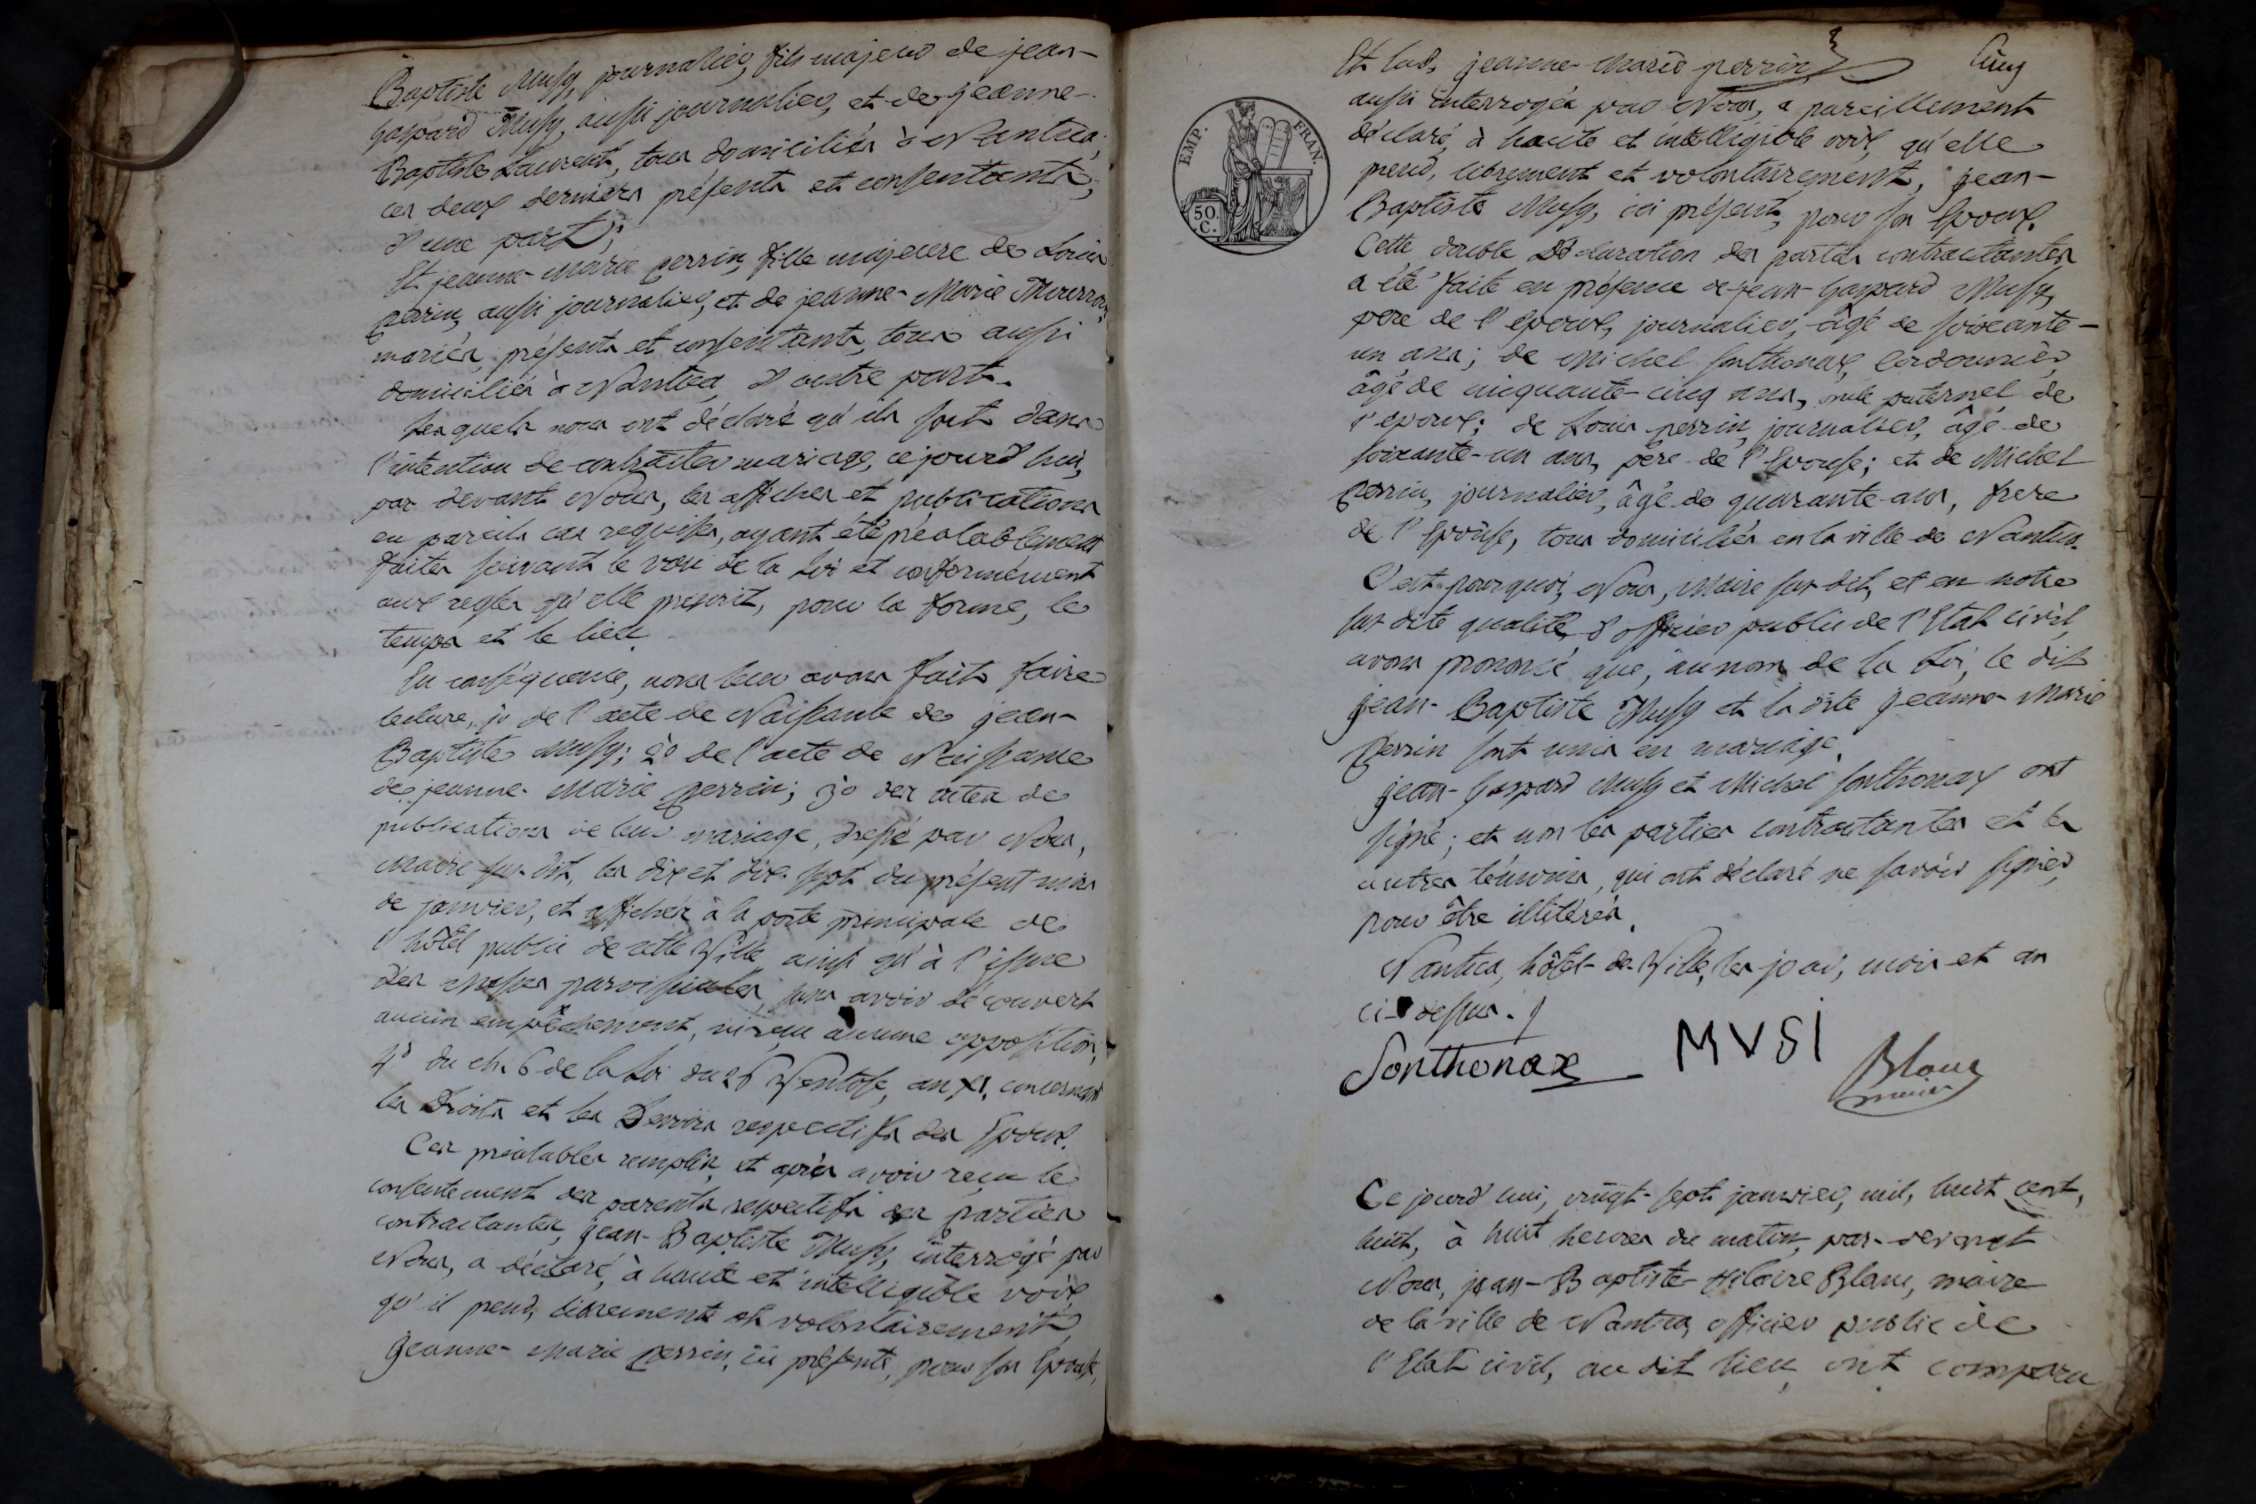 Baptiste Mussy, journalier, fils majeur de jean-
Gaspard Mussy, aussi journalier, et de jeanne-
Baptiste Laurent, tous domiciliés à Nantua,
ces deux derniers présents et consentants,
d'une part;
Et jeanne-Marie perrin, fille majeure de Louis
perrin, aussi journalier, et de jeanne-Marie
mariés, présents et consentants, tous aussi
domiciliés à Nantua, d'autre part.
Lesquels nous ont déclaré qu'ils sont dans
l'intention de contracter mariage, ce jourd'hui,
par devant Nous, les affiches et publications
en pareils cas requises, ayant été préalablement
faites suivant le vœu de la Loi et conformément
aux regles qu'elle prescrit, pour la forme, le
temps et le lieu.
En conséquence, nous leur avons fait faire
lecture, 1o de l'acte de Naissance de jean-
Baptiste Mussy; 2o de l'acte de Naissance
de jeanne-Marie perrin; 3o des actes de
publications de leur mariage, dressé par Nous,
Maire sus-dit, les dix et dix-sept du présent mois
de janvier, et affichés à la porte principale de
l'hôtel public de cette Ville ainsi qu'à l'issue
des Messes paroissiales, sans avoir découvert
aucun empêchement, ni reçu aucune opposition;
4o du ch. 6 de la Loi du 26 Ventose, an XI, concernant
les Droits et les Devoirs respectifs des Epoux.
Ces préalables remplis, et après avoir reçu le
consentement des parents respectifs des parties
contractantes, jean-Baptiste Mussy, interrogé par
Nous, a déclaré, à haute et intelligible voix,
qu'il prend, librement et volontairement,
jeanne-Marie perrin, ici présente, pour son Epouse,
Cinq
Et lad. jeanne-Marie perrin,
aussi interrogée par Nous, a pareillement
déclaré, à haute et intelligible voix, qu'elle
prend, librement et volontairement, jean-
Baptiste Mussy, ici présent, pour son Epoux.
Cette double Déclaration des parties contractantes
a été faite en présence de jean-Gaspard Mussy,
pere de l'epoux, journalier, âgé de soixante-
un ans; de Michel Sonthonax, Cordonnier,
âgé de cinquante-cinq ans, oncle paternel de
l'epoux; de Louis perrin, journalier, âgé de
soixante-un ans, père de l'Epouse; et de Michel
perrin, journalier, âgé de quarante ans, frere
de l'Epouse, tous domiciliés en la ville de Nantua.
C'est pourquoi, Nous, Maire sus-dit, et en notre
sus-dite qualité d'officier public de l'Etat civil,
avons prononcé que, au nom de la Loi, le dit
jean-Baptiste Mussy et la dite jeanne-Marie
perrin sont unis en mariage.
jean-Gaspard Mussy et Michel Sonthonax ont
signé; et non les parties contractantes et les
autres témoins, qui ont déclaré ne savoir signer,
pour être illitérés.
Nantua, hôtel-de-Ville, les jour, mois et an
ci-dessus.
Sonthonax MVSI Blanc
maire
Ce jourd'hui, vingt-sept janvier, mil, huit cent,
huit, à huit heures du matin, par-devant
Nous, jean-Baptiste-Hilaire Blanc, maire
de la ville de Nantua, officier public de
l'Etat civil, au dit lieu, ont comparu
EMP. FRAN.
50.
C.